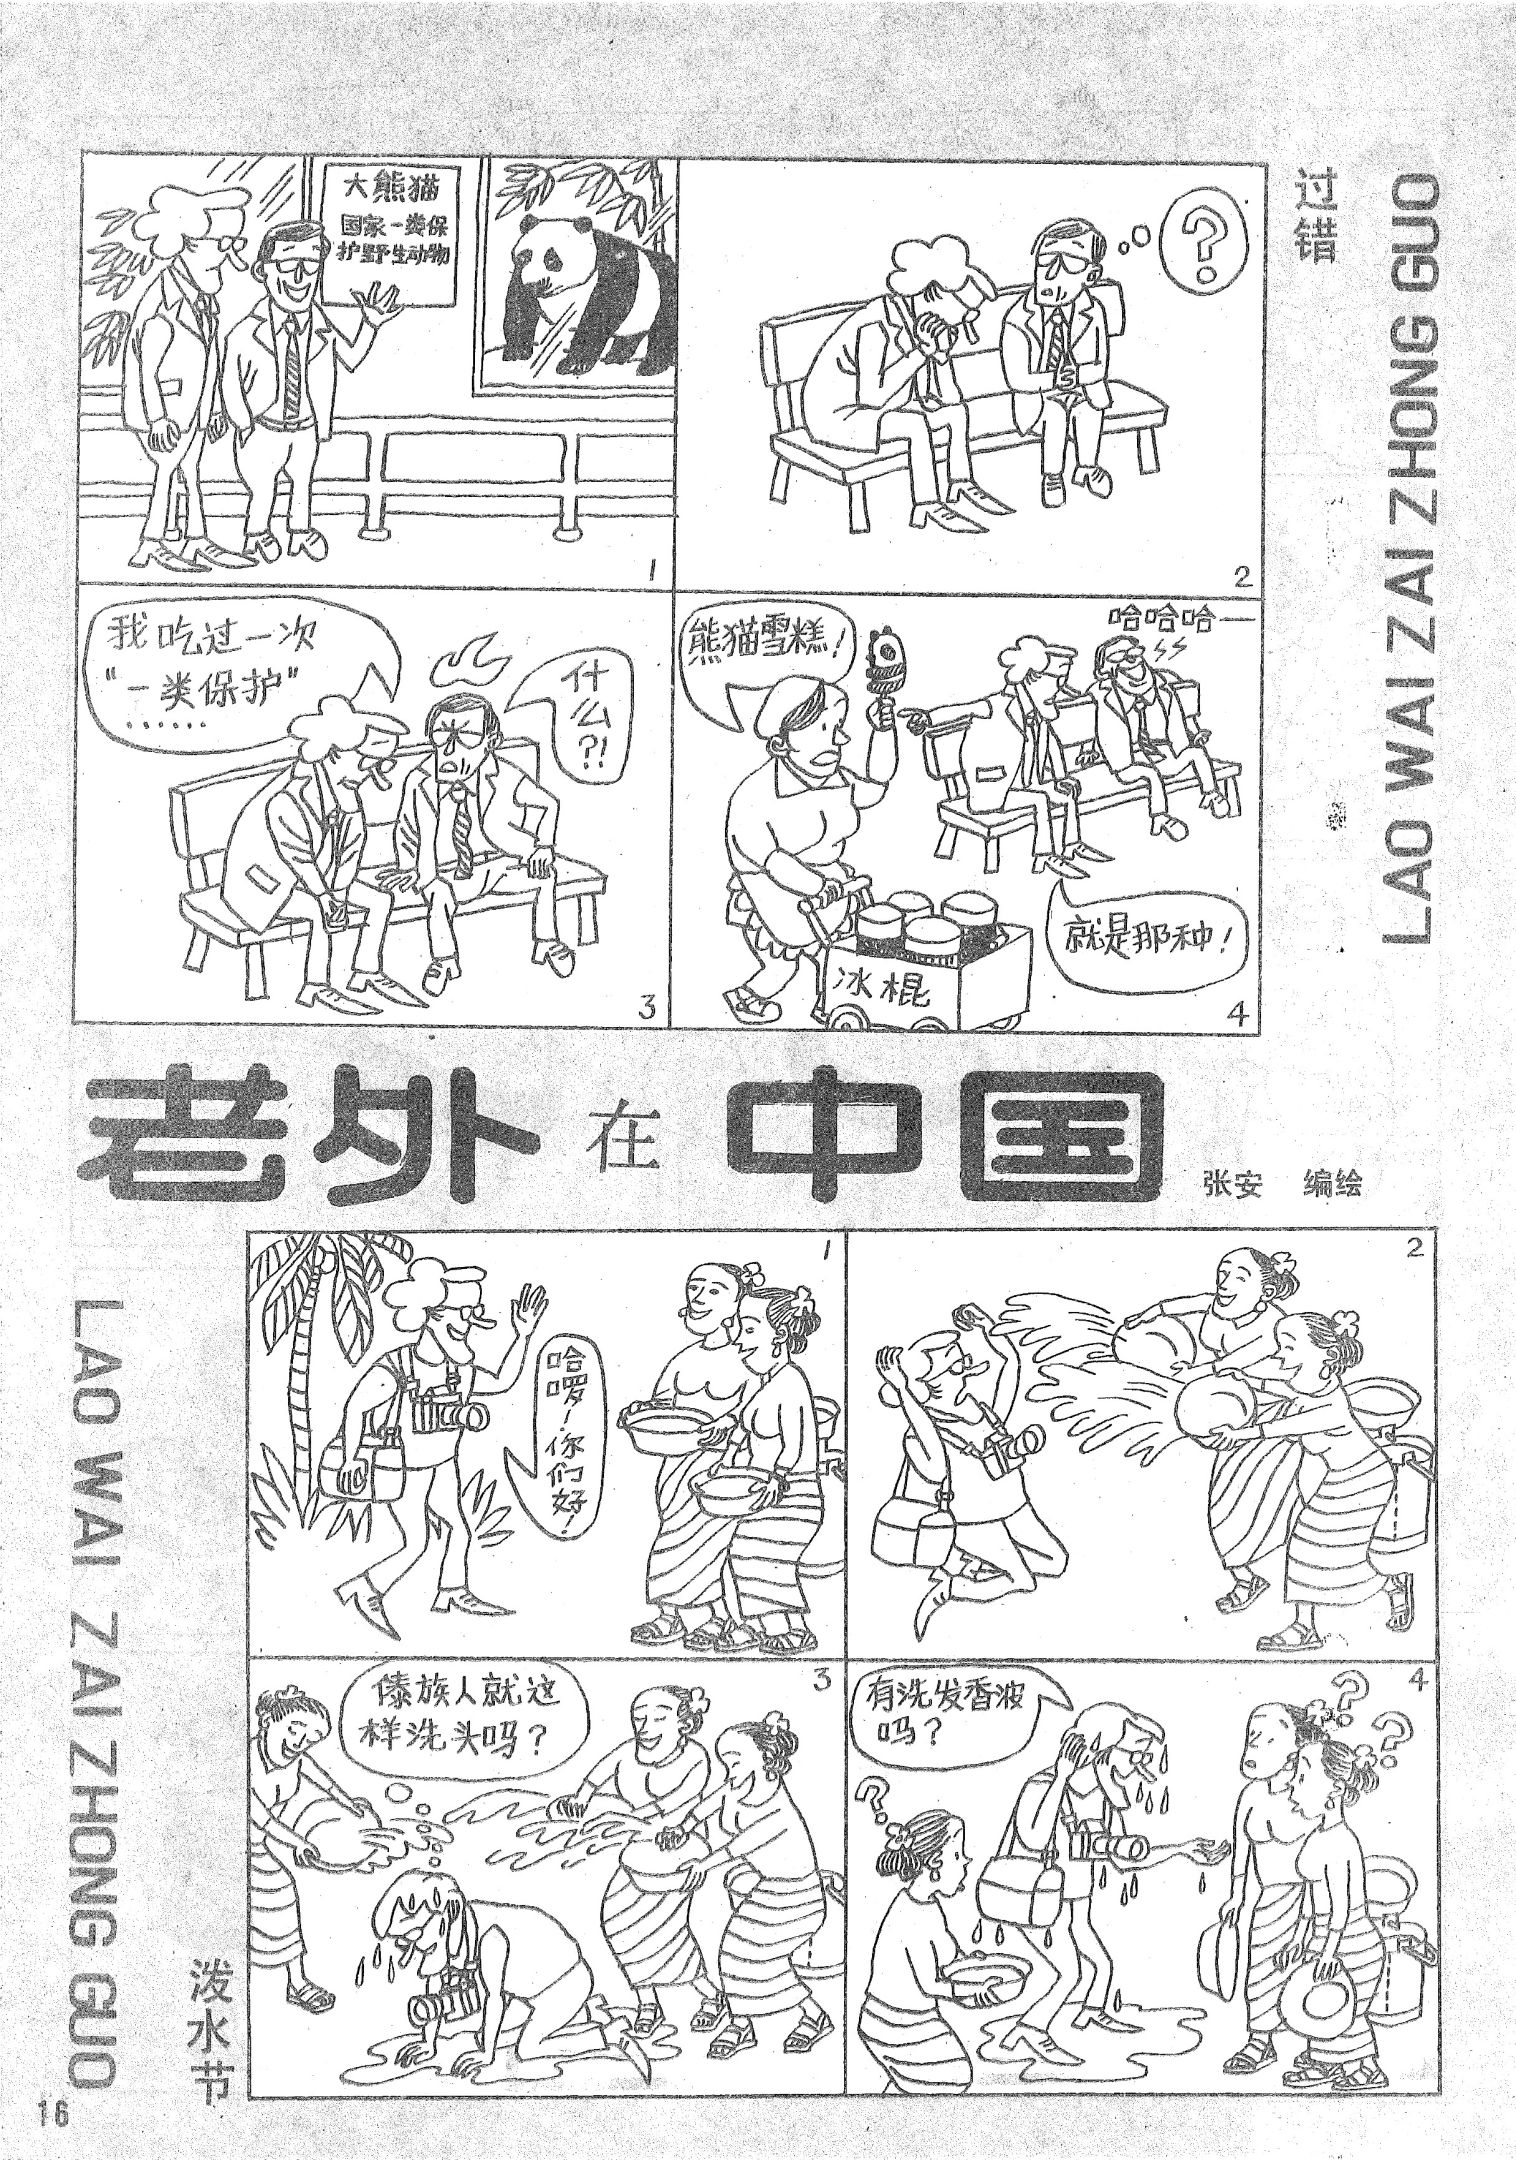 过错
LAO WAI ZAI ZHONG GUO
大熊猫
国家一类保
护野生动物
1
?
2
我吃过一次
“一类保护”
……
什
么
?!
3
熊猫雪糕!
哈哈哈一
就是那种!
冰棍
4
老外在中国
张安 编绘
LAO WAI ZAI ZHONG GUO
泼水节
1
哈啰!你们好!
2
傣族人就这
样洗头吗?
3
有洗发香波
吗?
?
?
?
4
16